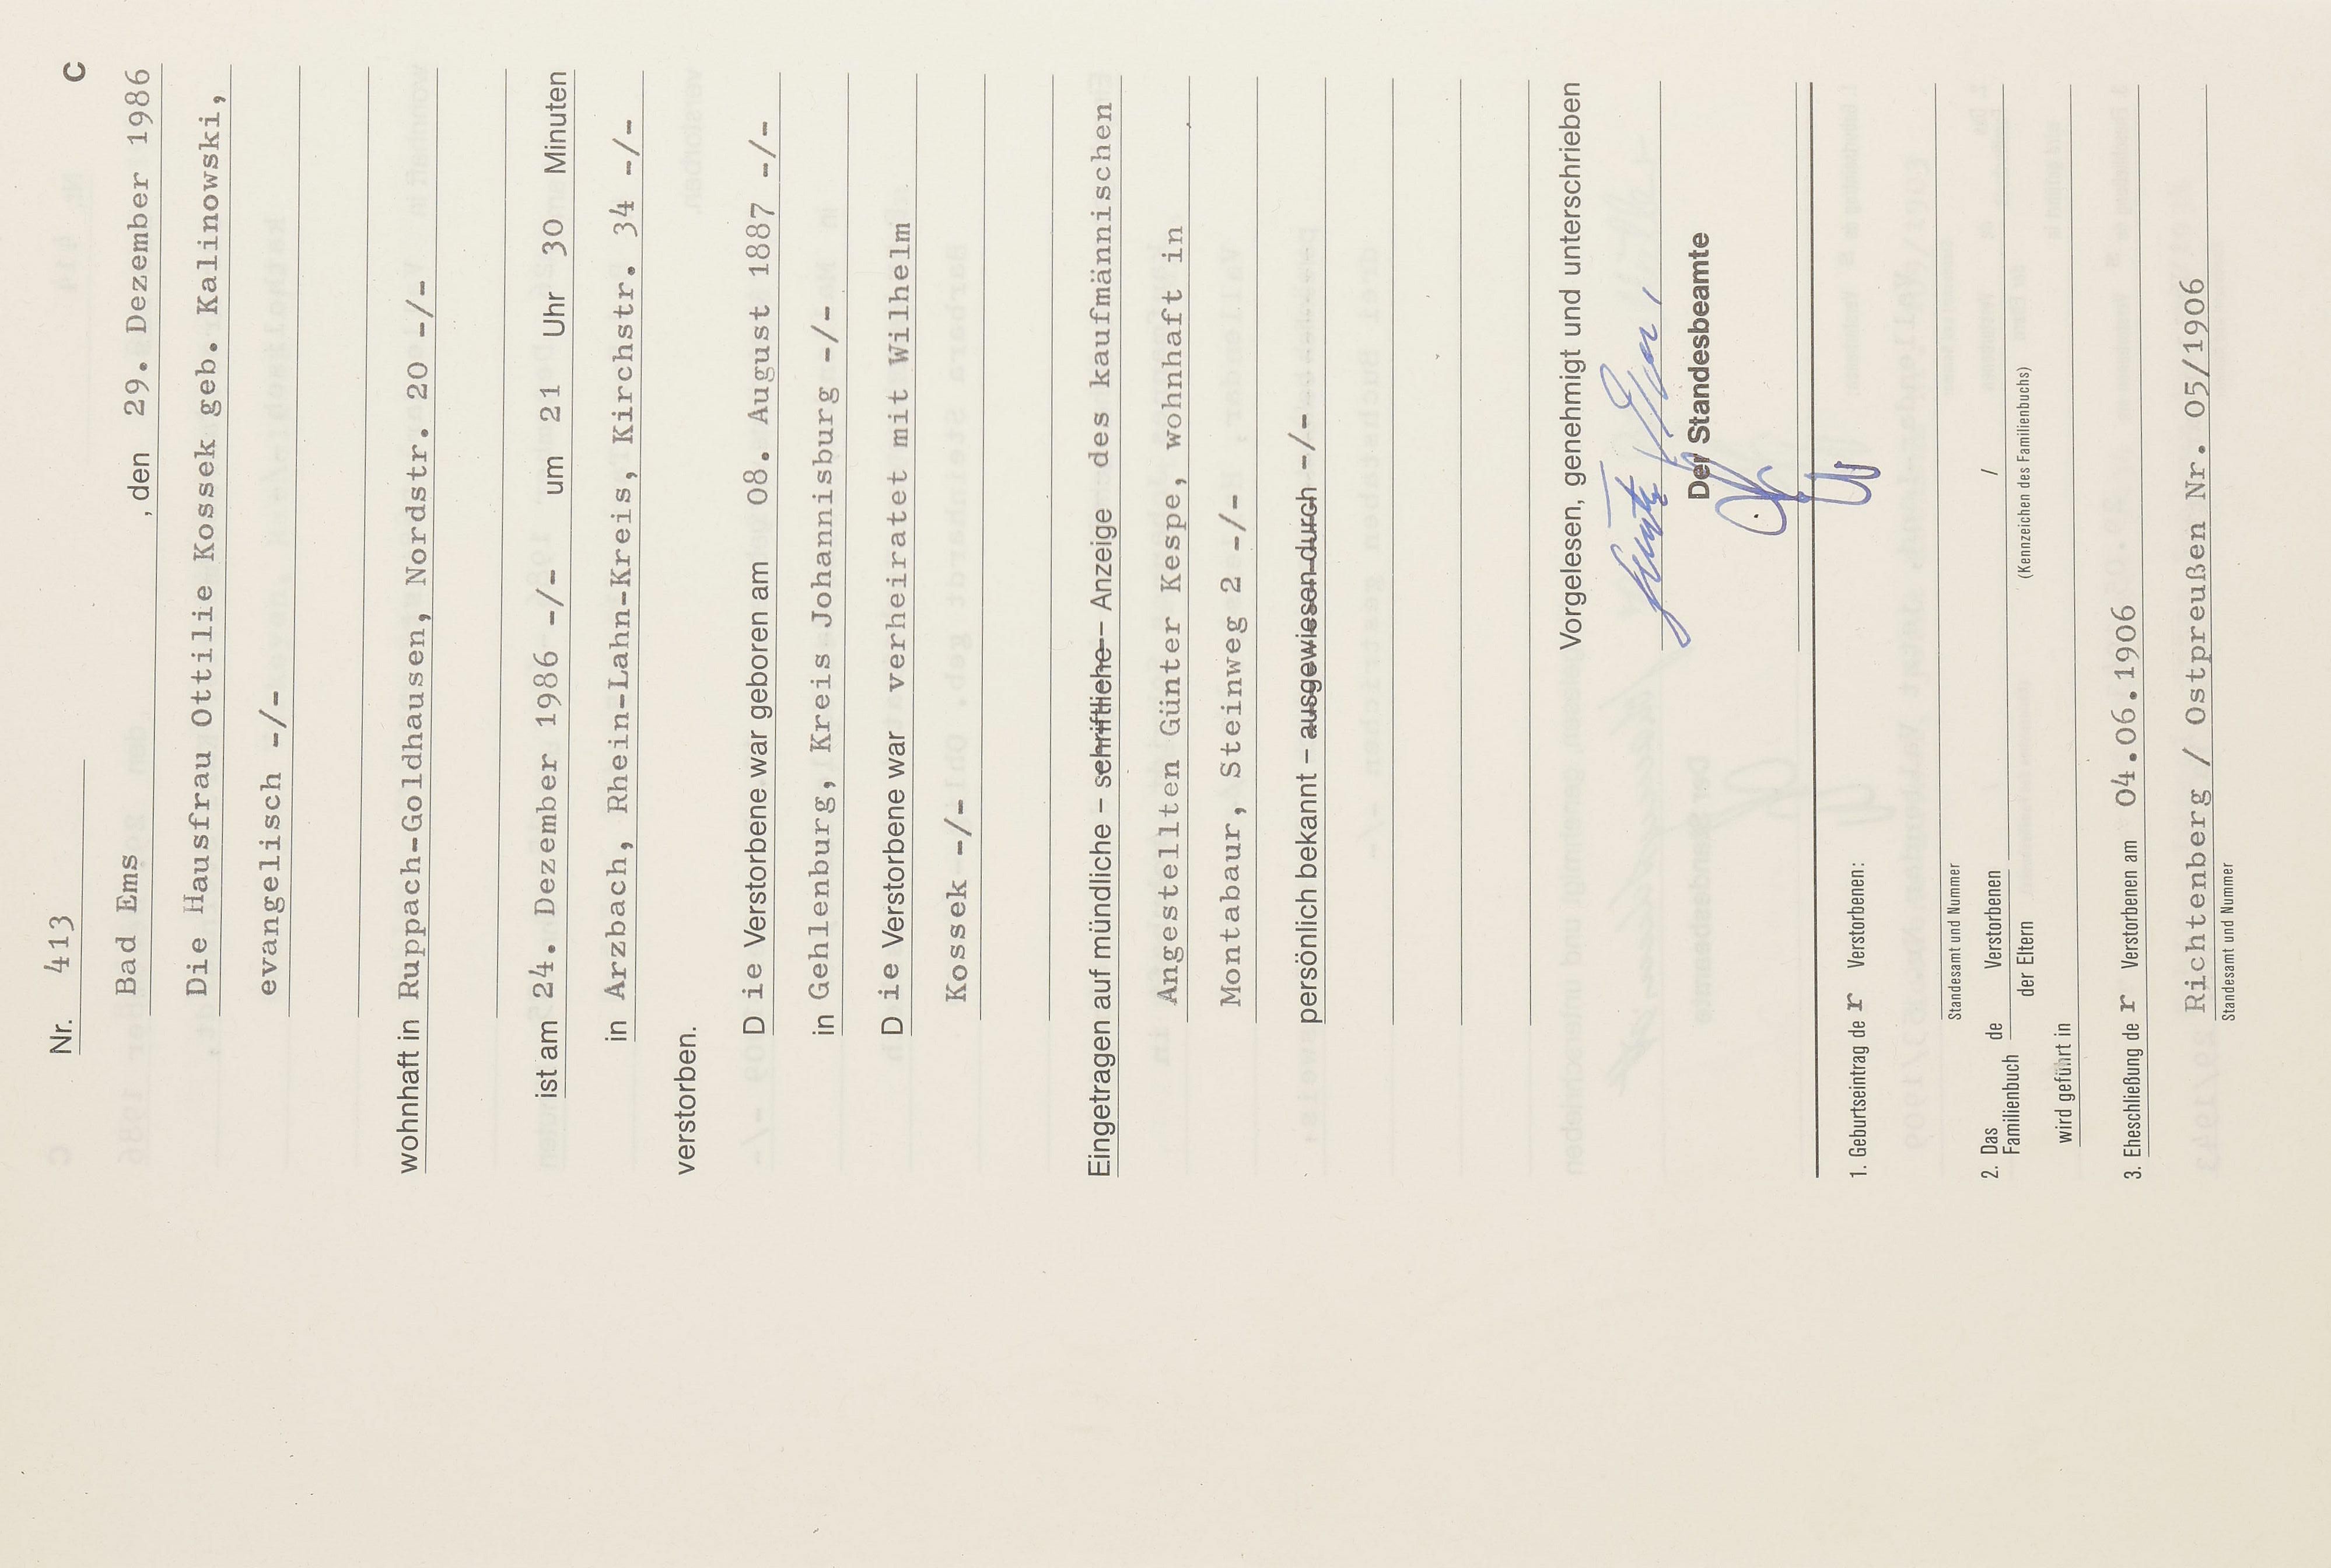 Nr. 413 C
Bad Ems , den 29. Dezember 1986
Die Hausfrau Ottilie Kossek geb. Kalinowski,
evangelisch -/-
wohnhaft in Ruppach-Goldhausen, Nordstr. 20 -/-
ist am 24. Dezember 1986 -/- um 21 Uhr 30 Minuten
in Arzbach, Rhein-Lahn-Kreis, Kirchstr. 34 -/-
verstorben.
D ie Verstorbene war geboren am 08. August 1887 -/-
in Gehlenburg, Kreis Johannisburg -/-
D ie Verstorbene war verheiratet mit Wilhelm
Kossek -/-
Eingetragen auf mündliche – schriftliche – Anzeige des kaufmännischen
Angestellten Günter Kespe, wohnhaft in
Montabaur, Steinweg 2 -/-
persönlich bekannt – ausgewiesen durch -/-
Vorgelesen, genehmigt und unterschrieben
Der Standesbeamte
1. Geburtseintrag de r Verstorbenen:
Standesamt und Nummer
2. Das Familienbuch de Verstorbenen der Eltern /
(Kennzeichen des Familienbuchs)
wird geführt in
3. Eheschließung de r Verstorbenen am 04.06.1906
Richtenberg / Ostpreußen Nr. 05/1906
Standesamt und Nummer